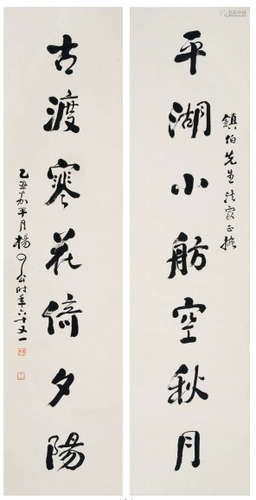 鎮伯先生法家正
平湖小舫空秋月
古渡寒花倚夕陽
乙丑嘉平月楊了公時年六十又一